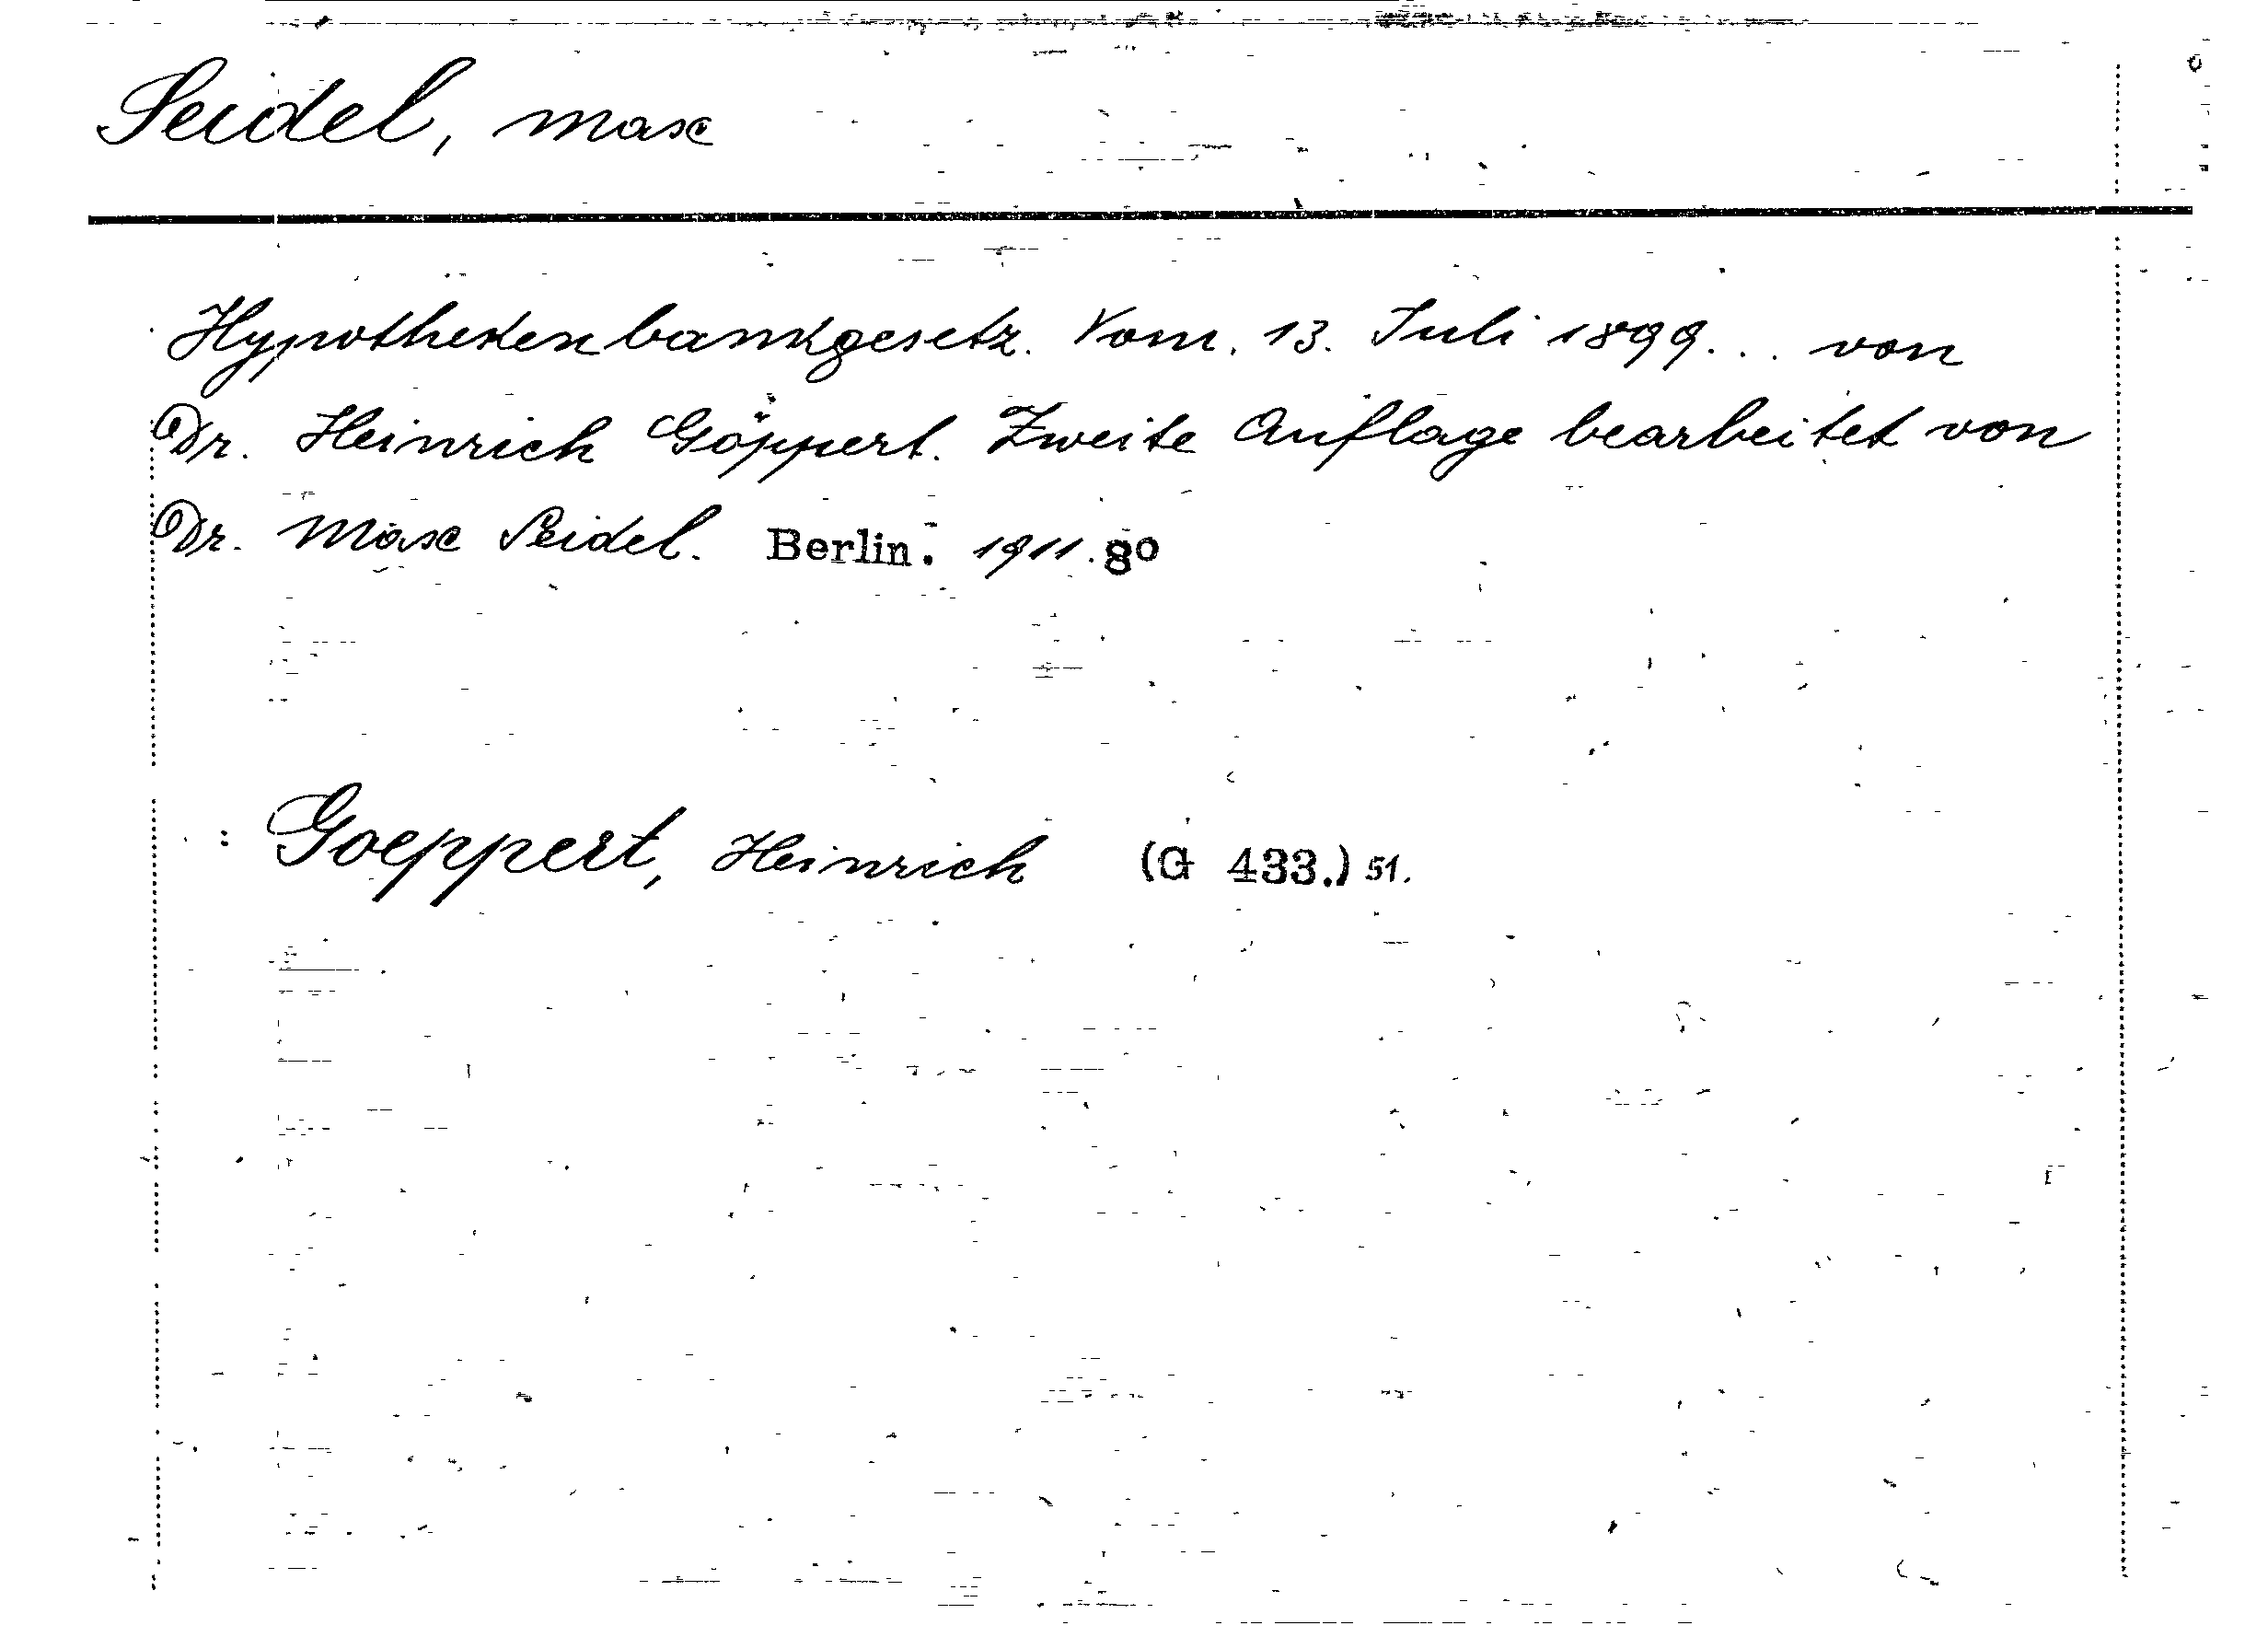 Seidel, Max
Hypothekenbankgesetz. Vom. 13. Juli 1899... von
Dr. Heinrich Göppert. Zweite Auflage bearbeitet von
Dr. Max Seidel. Berlin. 1911. 8º
: Goeppert, Heinrich (G 433.) 51.